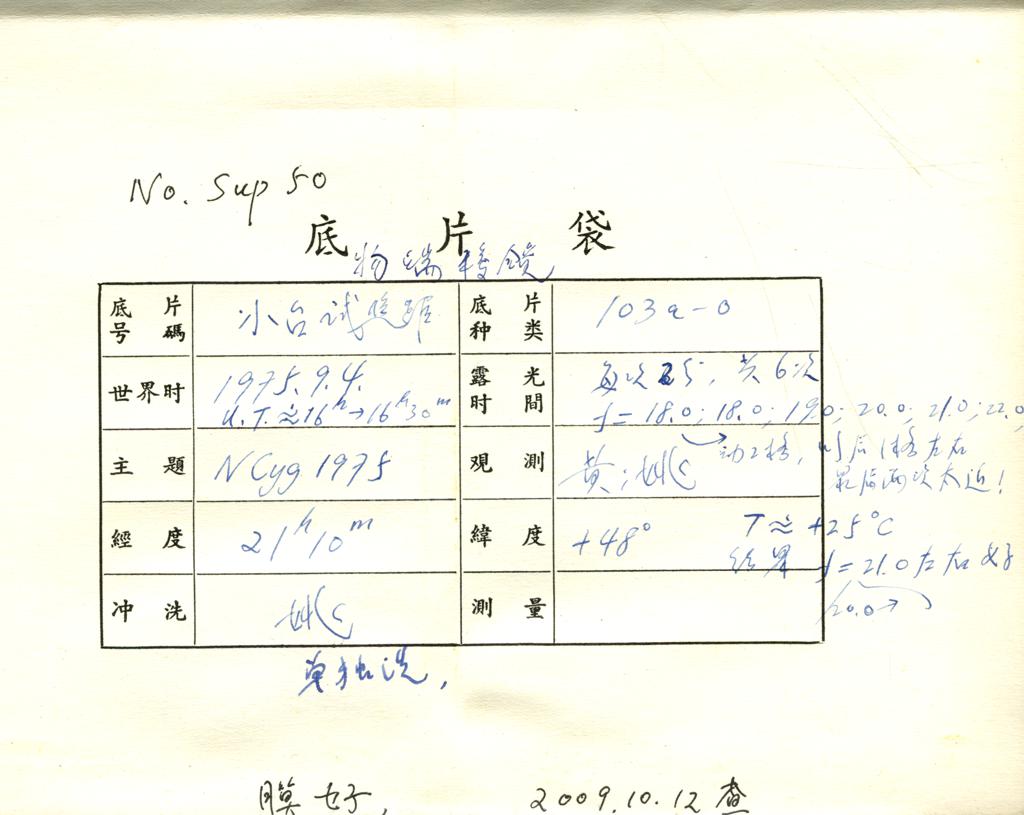 No. Sup 50
底片袋
物端棱镜
底片号碼 小台试 底片种类 103a-0
世界时 1975.9.4. 露光时間 每次5, 共6次
U.T.≈16h→16h30m f=18.0; 18.0; 19.0; 20.0; 21.0; 22.0;
主題 N Cyg 1975 观測 黄; 动2格, 以后1格左右
最后两次太近!
經度 21h10m 緯度 +48° T≈+25°C
结果 f=21.0左右好
20.0→
冲洗 測量
单独洗.
膜好. 2009.10.12查